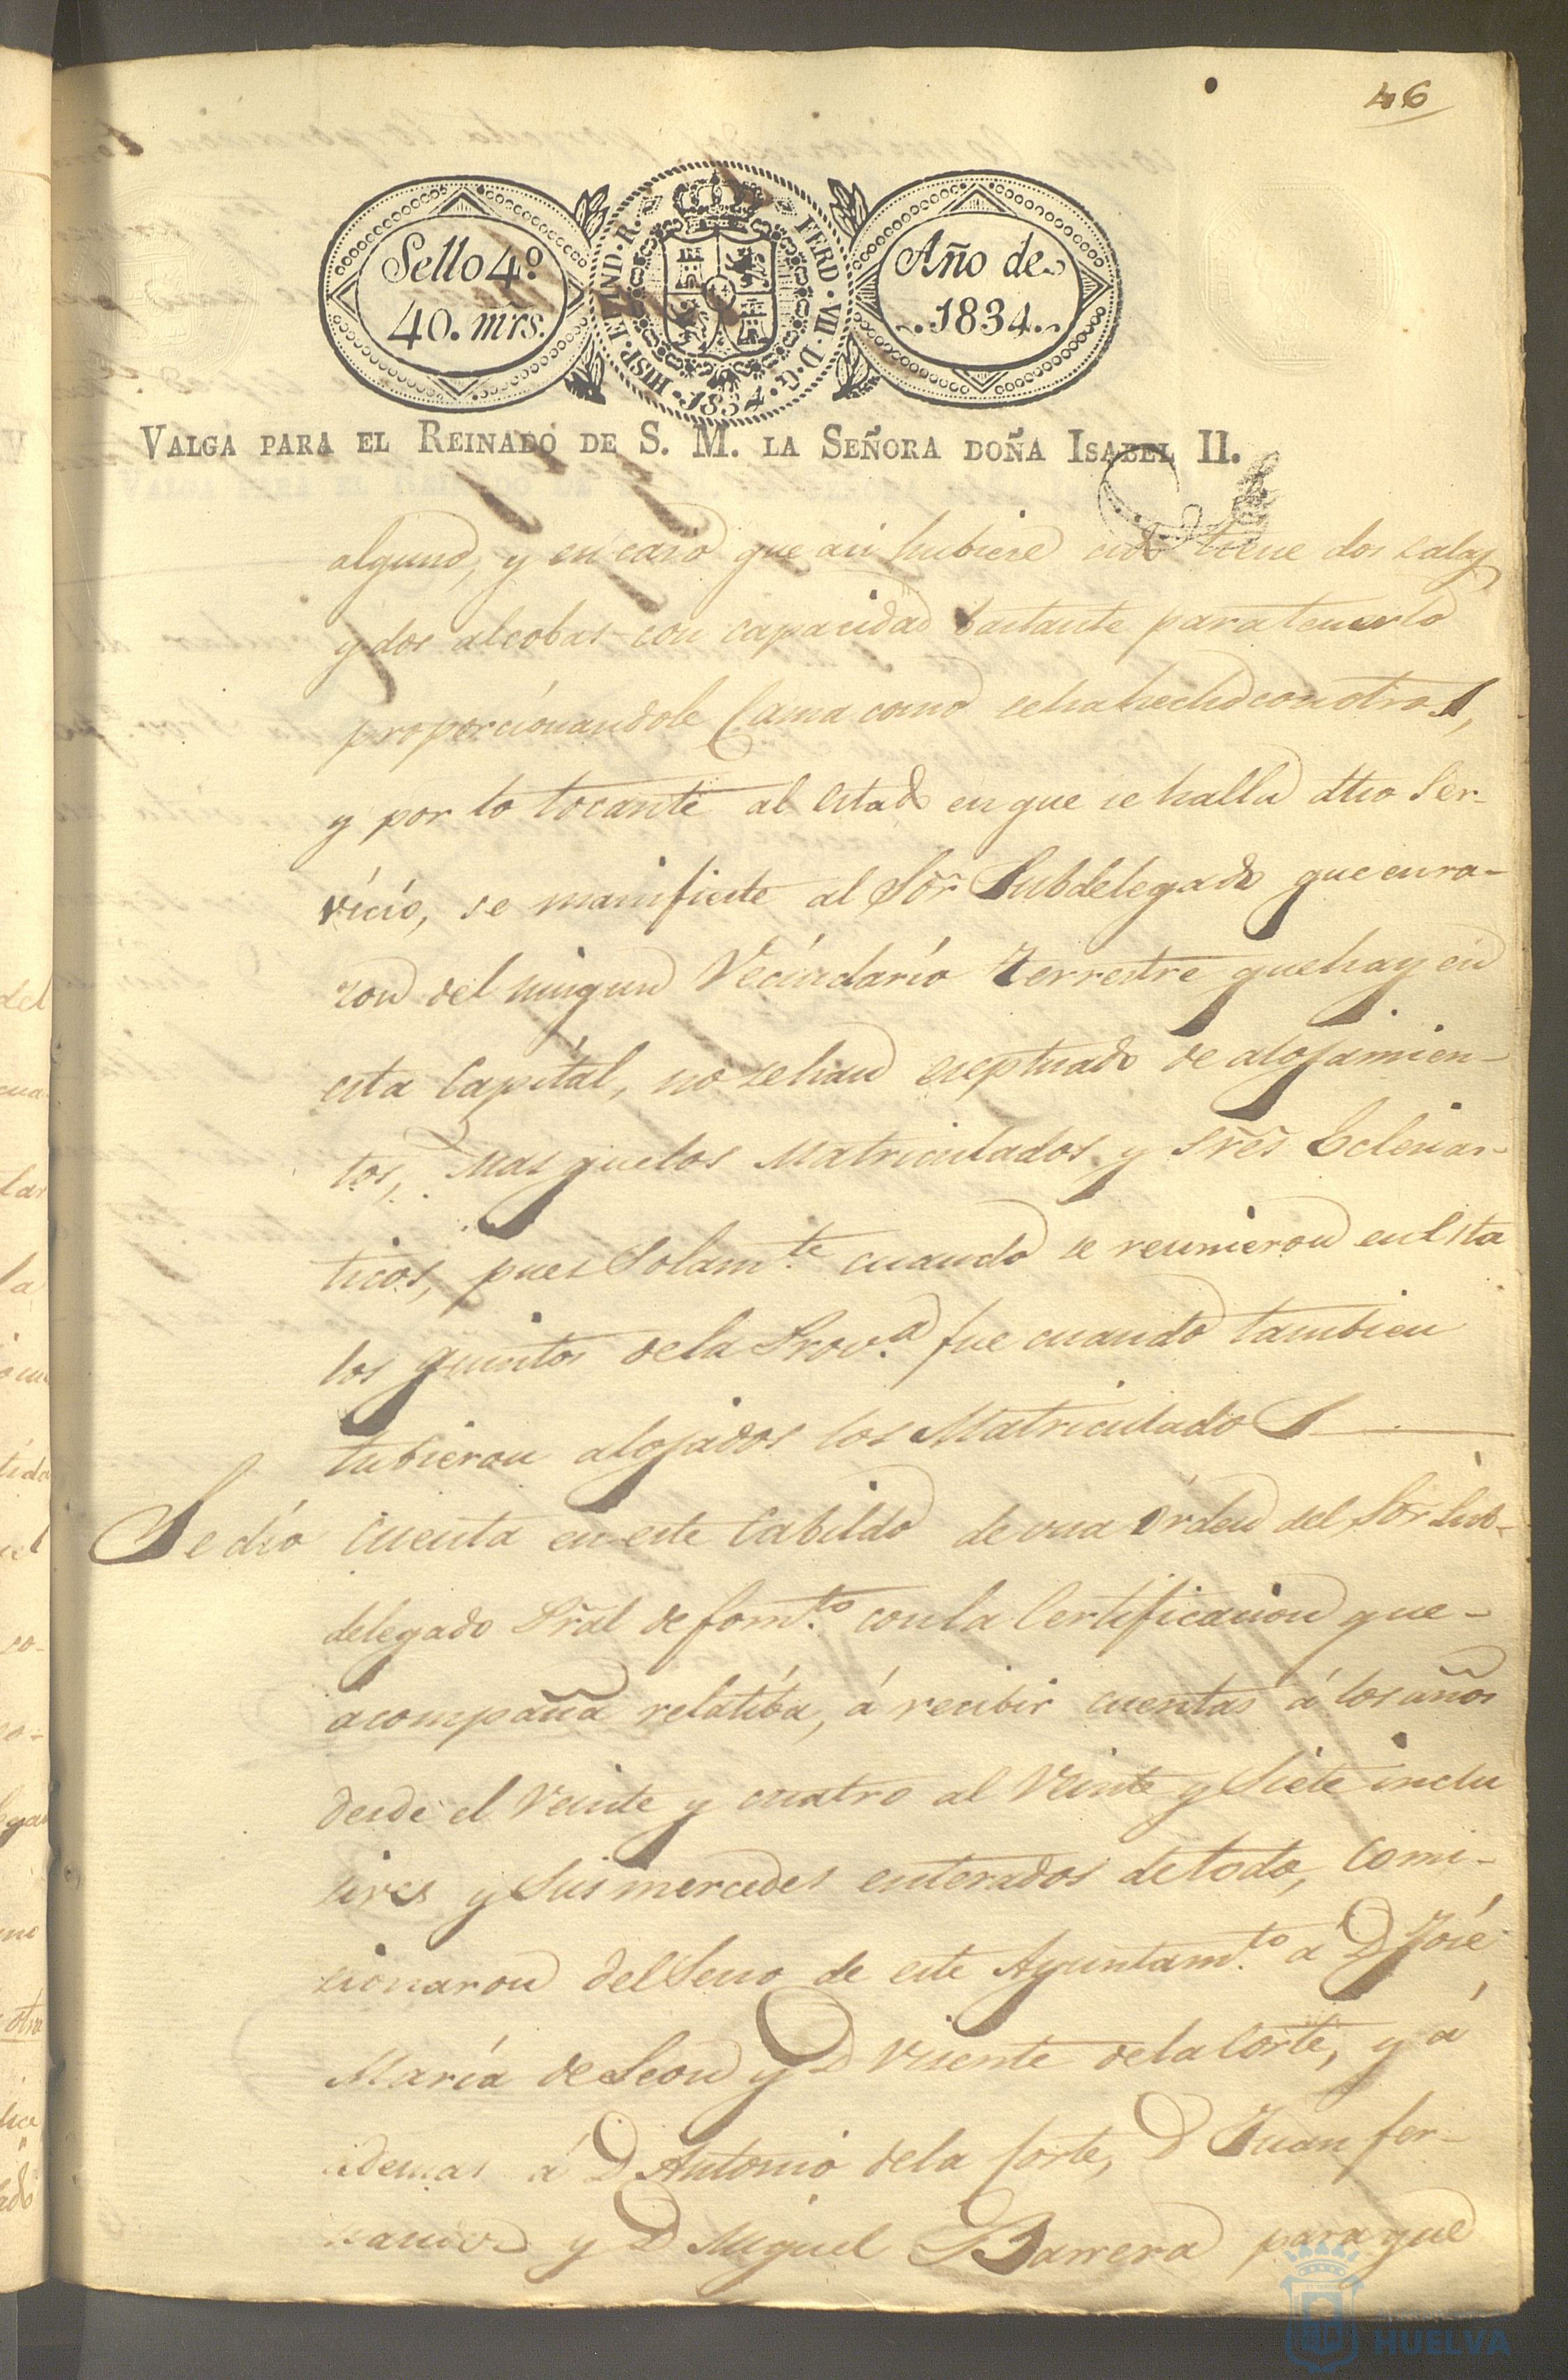 46
Sello 4.º
40. mrs.
HISP. ET IND. R. FERD. VII. D. G. 1834.
Año de
1834.
VALGA PARA EL REINADO DE S. M. LA SEÑORA DOÑA ISABEL II.
alguno, y en caso que asi hubiese sido tiene dos salas
y dos alcobas con capacidad bastante para tenerlo
proporcionandole Cama como se ha hecho con otros,
y por lo tocante al estado en que se halla dho Ser-
vicio, se manifieste al Sõr Subdelegado que en ra-
zon del ningun Vecindario Terrestre que hay en
esta Capital, no se han exeptuado de alojamien-
tos, mas que los Matriculados y Sres Eclesias-
ticos, pues Solam.te cuando se reunieron en Esta
los quintos de la Prov.a fue cuando tambien
tubieron alojados los Matriculados
Se dio cuenta en este Cabildo de una orden del Sor Sub-
delegado Pral de fom.to con la Certificacion que
acompaña relatiba, á recibir cuentas á los años
desde el Veinte y cuatro al Veinte y Siete inclu
sives y Sus mercedes enterados de todo, Comi-
sionaron del Seno de este Ayuntam.to a D José
María de Leon y D Vicente de la Corte, y á
demas á D Antonio de la Corte, D Juan fer-
nandez y D Miguel Barrera para que
HUELVA